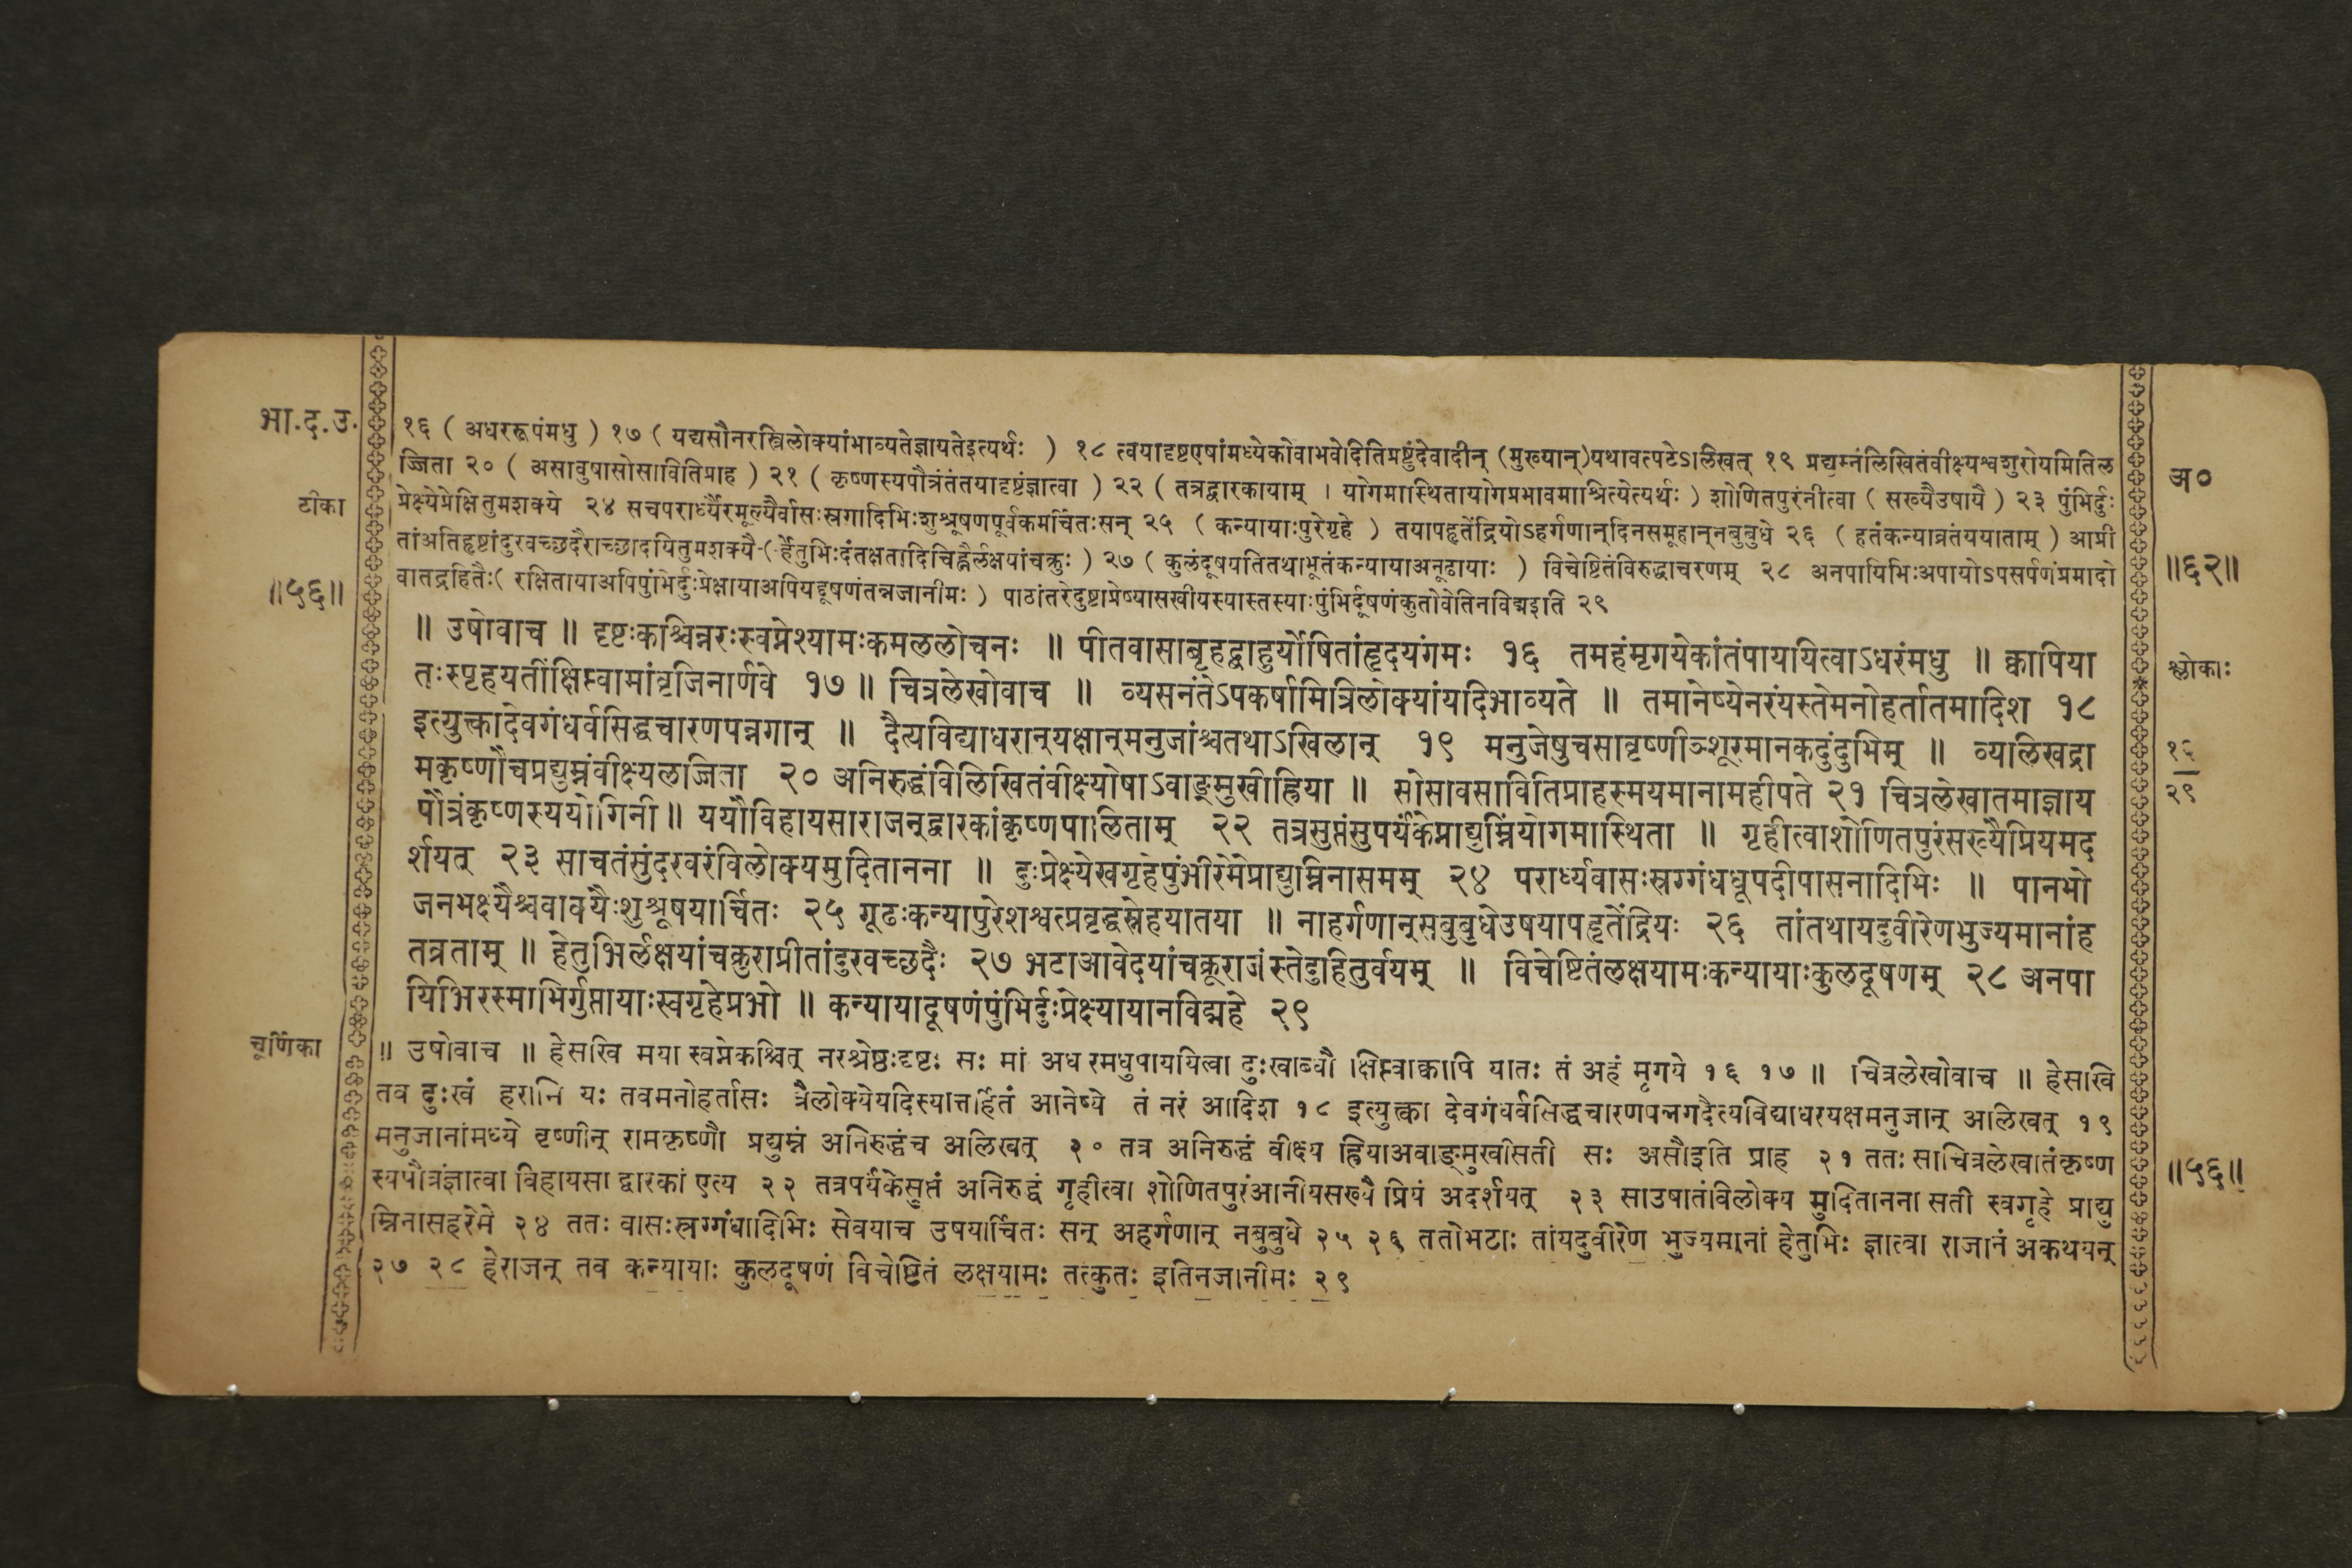 भा.द.उ.
१६ ( अधररूपंमधु ) १७ ( यद्यसौनरस्त्रिलोक्यांभाव्यतेज्ञायतेइत्यर्थः ) १८ त्वयादृष्टएषांमध्येकोवाभवेदितिप्रष्टुंदेवादीन् (मुख्यान्)यथावत्पटेऽलिखत् १९ प्रद्युम्नंलिखितंवीक्ष्यश्वशुरोयमितिल
ज्जिता २० ( असावुषासोसावितिप्राह ) २१ ( कृष्णस्यपौत्रंतंतयादृष्टंज्ञात्वा ) २२ ( तत्रद्वारकायाम् । योगमास्थितायोगप्रभावमाश्रित्येत्यर्थः ) शोणितपुरंनीत्वा ( सख्यैउषायै ) २३ पुंभिर्दुः
टीका
प्रेक्ष्येप्रेक्षितुमशक्ये २४ सचपरार्ध्यैरमूल्यैर्वासःस्रगादिभिःशुश्रूषणपूर्वकमर्चितःसन् २५ ( कन्यायाःपुरेगृहे ) तयापहृतेंद्रियोऽहर्गणान्दिनसमूहान्नबुबुधे २६ ( हतंकन्याव्रतंययाताम् ) आप्री
तांअतिहृष्टांदुरवच्छदैराच्छादयितुमशक्यै-( र्हेतुभिःदंतक्षतादिचिह्नैर्लक्षयांचक्रुः ) २७ ( कुलंदूषयतितथाभूतंकन्यायाअनूढायाः ) विचेष्टितंविरुद्धाचरणम् २८ अनपायिभिःअपायोऽपसर्पणंप्रमादो
वातद्रहितैः( रक्षितायाअपिपुंभिर्दुःप्रेक्षायाअपियद्दूषणंतन्नजानीमः ) पाठांतरेदुष्टाप्रेष्यासखीयस्यास्तस्याःपुंभिर्दूषणंकुतोवेतिनविद्मइति २९
॥५६॥
अ०
॥६२॥
॥ उषोवाच ॥ दृष्टःकश्चिन्नरःस्वप्नेश्यामःकमललोचनः ॥ पीतवासाबृहद्बाहुर्योषितांहृदयंगमः १६ तमहंमृगयेकांतंपाययित्वाऽधरंमधु ॥ क्वापिया
तःस्पृहयतींक्षिप्त्वामांवृजिनार्णवे १७ ॥ चित्रलेखोवाच ॥ व्यसनंतेऽपकर्षामित्रिलोक्यांयदिभाव्यते ॥ तमानेष्येनरंयस्तेमनोहर्तातमादिश १८
इत्युक्त्वादेवगंधर्वसिद्धचारणपन्नगान् ॥ दैत्यविद्याधरान्यक्षान्मनुजांश्चतथाऽखिलान् १९ मनुजेषुचसावृष्णीञ्शूरमानकदुंदुभिम् ॥ व्यालिखद्रा
मकृष्णौचप्रद्युम्नंवीक्ष्यलज्जिता २० अनिरुद्धंविलिखितंवीक्ष्योषाऽवाङ्मुखीह्रिया ॥ सोसावसावितिप्राहस्मयमानामहीपते २१ चित्रलेखातमाज्ञाय
पौत्रंकृष्णस्ययोगिनी ॥ ययौविहायसाराजन्द्वारकांकृष्णपालिताम् २२ तत्रसुप्तंसुपर्यंकेप्राद्युम्निंयोगमास्थिता ॥ गृहीत्वाशोणितपुरंसख्यैप्रियमद
र्शयत् २३ साचतंसुंदरवरंविलोक्यमुदितानना ॥ दुःप्रेक्ष्येस्वगृहेपुंभीरेमेप्राद्युम्निनासमम् २४ परार्ध्यवासःस्रग्गंधधूपदीपासनादिभिः ॥ पानभो
जनभक्ष्यैश्चवाक्यैःशुश्रूषयार्चितः २५ गूढःकन्यापुरेशश्वत्प्रवृद्धस्नेहयातया ॥ नाहर्गणान्सबुबुधेउषयापहृतेंद्रियः २६ तांतथायदुवीरेणभुज्यमानांह
तव्रताम् ॥ हेतुभिर्लक्षयांचक्रुराप्रीतांदुरवच्छदैः २७ भटाआवेदयांचक्रूराजंस्तेदुहितुर्वयम् ॥ विचेष्टितंलक्षयामःकन्यायाःकुलदूषणम् २८ अनपा
यिभिरस्माभिर्गुप्तायाःस्वगृहेप्रभो ॥ कन्यायादूषणंपुंभिर्दुःप्रेक्ष्यायानविद्महे २९
श्लोकाः
१६
२९
चूर्णिका
॥ उषोवाच ॥ हेसखि मया स्वप्नेकश्चित् नरश्रेष्ठःदृष्टः सः मां अध रमधुपाययित्वा दुःखाब्धौ क्षिप्त्वाक्वापि यातः तं अहं मृगये १६ १७ ॥ चित्रलेखोवाच ॥ हेसखि
तव दुःखं हरामि यः तवमनोहर्तासः त्रैलोक्येयदिस्यात्तर्हितं आनेष्ये तं नरं आदिश १८ इत्युक्त्वा देवगंधर्वसिद्धचारणपन्नगदैत्यविद्याधरयक्षमनुजान् अलिखत् १९
मनुजानांमध्ये वृष्णीन् रामकृष्णौ प्रद्युम्नं अनिरुद्धंच अलिखत् २० तत्र अनिरुद्धं वीक्ष्य ह्रियाअवाङ्मुखीसती सः असौइति प्राह २१ ततः साचित्रलेखातंकृष्ण
स्यपौत्रंज्ञात्वा विहायसा द्वारकां एत्य २२ तत्रपर्यंकेसुप्तं अनिरुद्धं गृहीत्वा शोणितपुरंआनीयसख्यै प्रियं अदर्शयत् २३ साउषातंविलोक्य मुदितानना सती स्वगृहे प्राद्यु
म्निनासहरेमे २४ ततः वासःस्रग्गंधादिभिः सेवयाच उषयार्चितः सन् अहर्गणान् नबुबुधे २५ २६ ततोभटाः तांयदुवीरेण भुज्यमानां हेतुभिः ज्ञात्वा राजानं अकथयन्
२७ २८ हेराजन् तव कन्यायाः कुलदूषणं विचेष्टितं लक्षयामः तत्कुतः इतिनजानीमः २९
॥५६॥